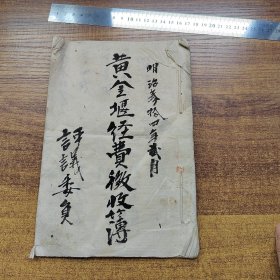 明治参拾四年貳月
黄金堰経費徴收簿
評議委員